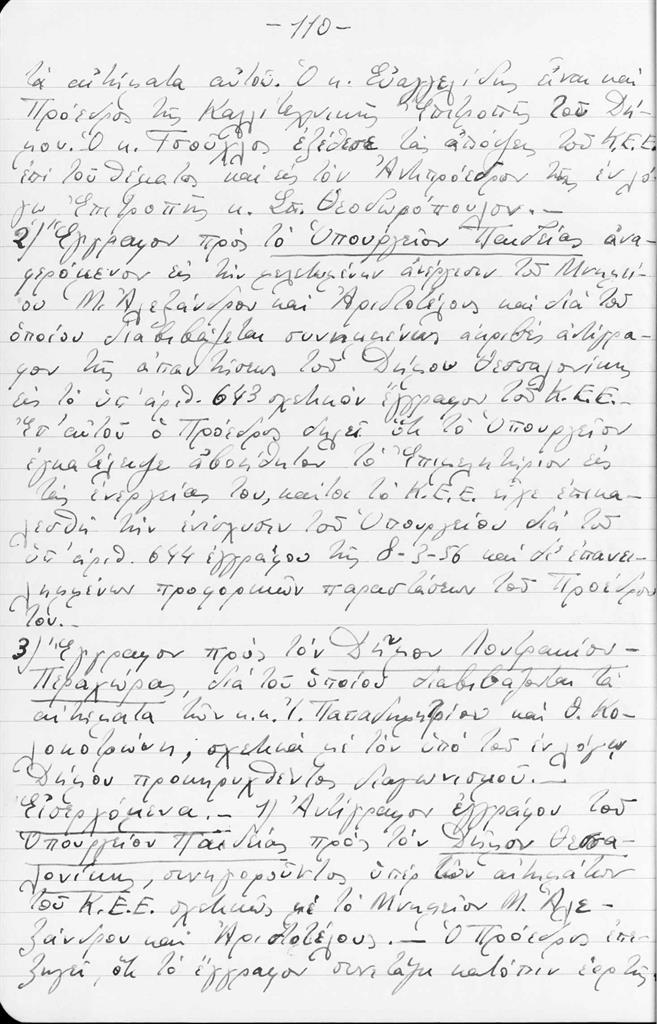 -110-
τὰ αἰτήματα αὐτοῦ. Ὁ κ. Εὐαγγελίδης εἶναι καὶ
Πρόεδρος τῆς Καλλιτεχνικῆς Ἐπιτροπῆς τοῦ Δή-
μου. Ὁ κ. Τσοῦγλος ἐξέθεσε τὰς ἀπόψεις τοῦ Κ.Ε.Ε.
ἐπὶ τοῦ θέματος καὶ εἰς τὸν Ἀντιπρόεδρον τῆς ἐν λό-
γῳ Ἐπιτροπῆς κ. Σπ. Θεοδωρόπουλον.-
2) Ἔγγραφον πρὸς τὸ Ὑπουργεῖον Παιδείας ἀνα-
φερόμενον εἰς τὴν μελετωμένην ἀνέργεσιν τοῦ Μνημεί-
ου Μ. Ἀλεξάνδρου καὶ Ἀριστοτέλους καὶ διὰ τοῦ
ὁποίου διαβιβάζεται συνημμένως ἀκριβὲς ἀντίγρα-
φον τῆς ἀπαντήσεως τοῦ Δήμου Θεσσαλονίκης
εἰς τὸ ὑπ' ἀριθ. 643 σχετικὸν ἔγγραφον τοῦ Κ.Ε.Ε.-
Ἐπ' αὐτοῦ ὁ Πρόεδρος δηλεῖ ὅτι τὸ Ὑπουργεῖον
ἐγκατέλειψε ἀβοήθητον τὸ Ἐπιμελητήριον εἰς
τὰς ἐνεργείας του, καίτοι τὸ Κ.Ε.Ε. εἶχε ἐπικα-
λεσθῆ τὴν ἐνίσχυσιν τοῦ Ὑπουργείου διὰ τοῦ
ὑπ' ἀριθ. 644 ἐγγράφου τῆς 8-3-56 καὶ δι' ἐπανει-
λημμένων προφορικῶν παραστάσεων τοῦ Προέδρου
του.-
3) Ἔγγραφον πρὸς τὸν Δῆμον Λουτρακίου-
Περαχώρας, διὰ τοῦ ὁποίου διαβιβάζονται τὰ
αἰτήματα τῶν κ.κ. Ἰ. Παπαδημητρίου καὶ Θ. Κο-
λοκοτρώνη, σχετικὰ μὲ τὸν ὑπὸ τοῦ ἐν λόγῳ
Δήμου προκηρυχθέντος διαγωνισμοῦ.-
Εἰσερχόμενα.- 1) Ἀντίγραφον ἐγγράφου τοῦ
Ὑπουργείου Παιδείας πρὸς τὸν Δῆμον Θεσσα-
λονίκης, συνηγοροῦντος ὑπὲρ τῶν αἰτημάτων
τοῦ Κ.Ε.Ε. σχετικῶς μὲ τὸ Μνημεῖον Μ. Ἀλε-
ξάνδρου καὶ Ἀριστοτέλους.- Ὁ Πρόεδρος ἐπε-
ξηγεῖ, ὅτι τὸ ἔγγραφον συνετάγη κατόπιν ἑορτῆς